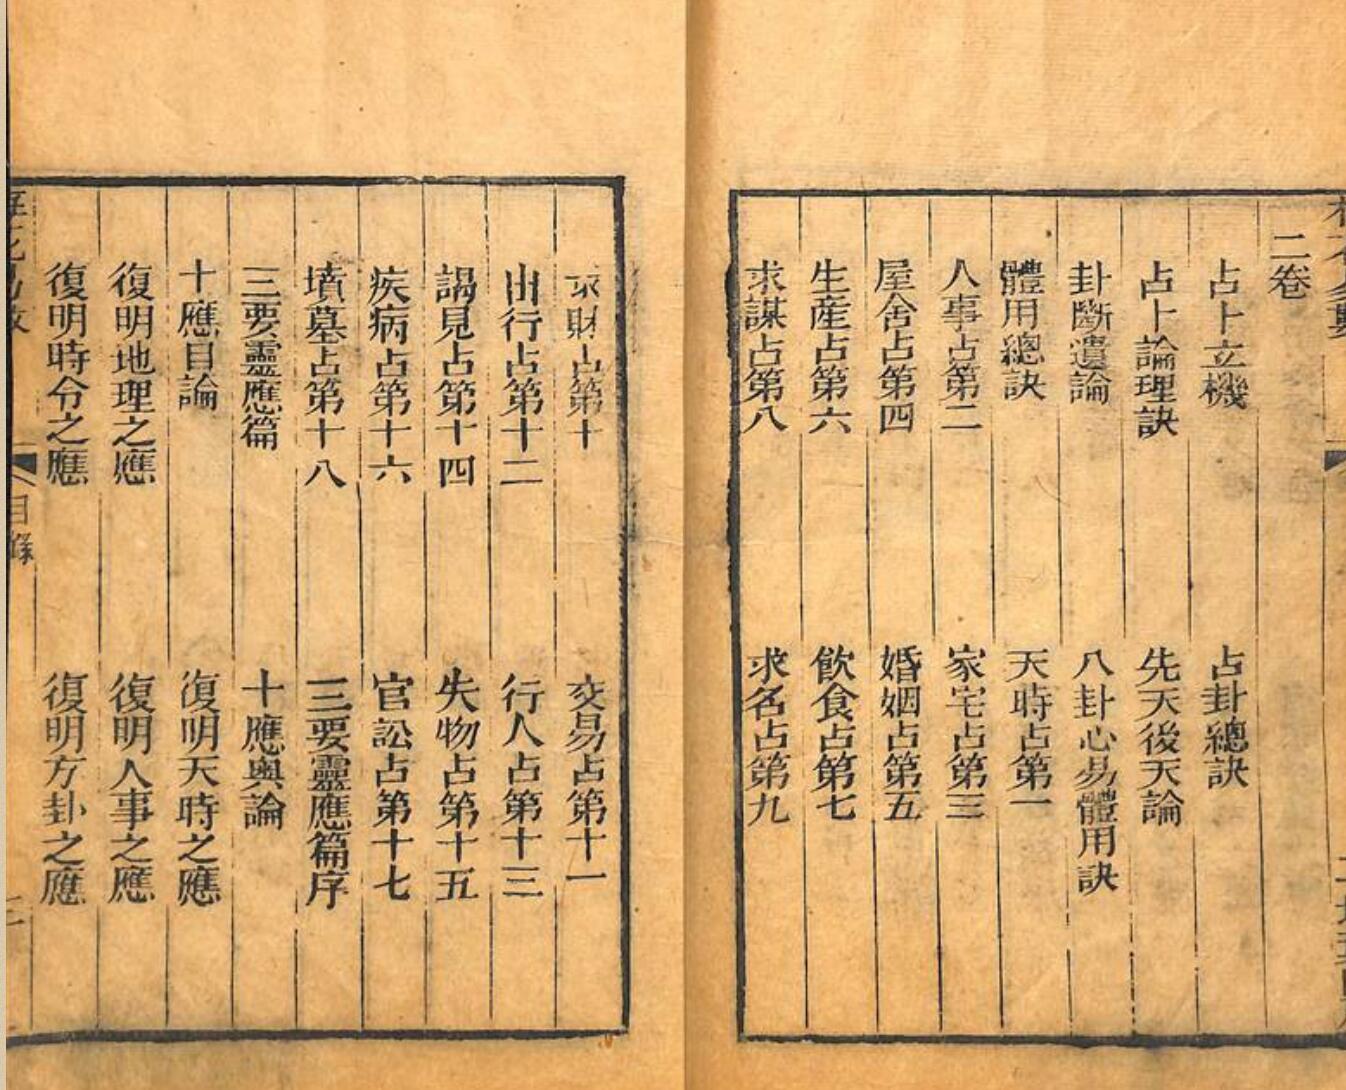 二卷
占卜立機
占卦總訣
占卜論理訣
先天後天論
卦斷遺論
八卦心易體用訣
體用總訣
天時占第一
人事占第二
家宅占第三
屋舍占第四
婚姻占第五
生産占第六
飲食占第七
求謀占第八
求名占第九
求財占第十
交易占第十一
出行占第十二
行人占第十三
謁見占第十四
失物占第十五
疾病占第十六
官訟占第十七
墳墓占第十八
三要靈應篇序
三要靈應篇
十應奧論
十應目論
復明天時之應
復明地理之應
復明人事之應
復明時令之應
復明方卦之應
目錄